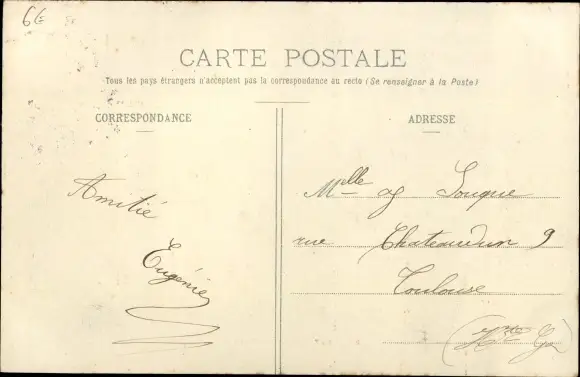 6G
CARTE POSTALE
Tous les pays étrangers n'acceptent pas la correspondance au recto (Se renseigner à la Poste)
CORRESPONDANCE
ADRESSE
Amitié
Eugénie
Melle
rue Chateaudun 9
Toulouse
(Hte G)